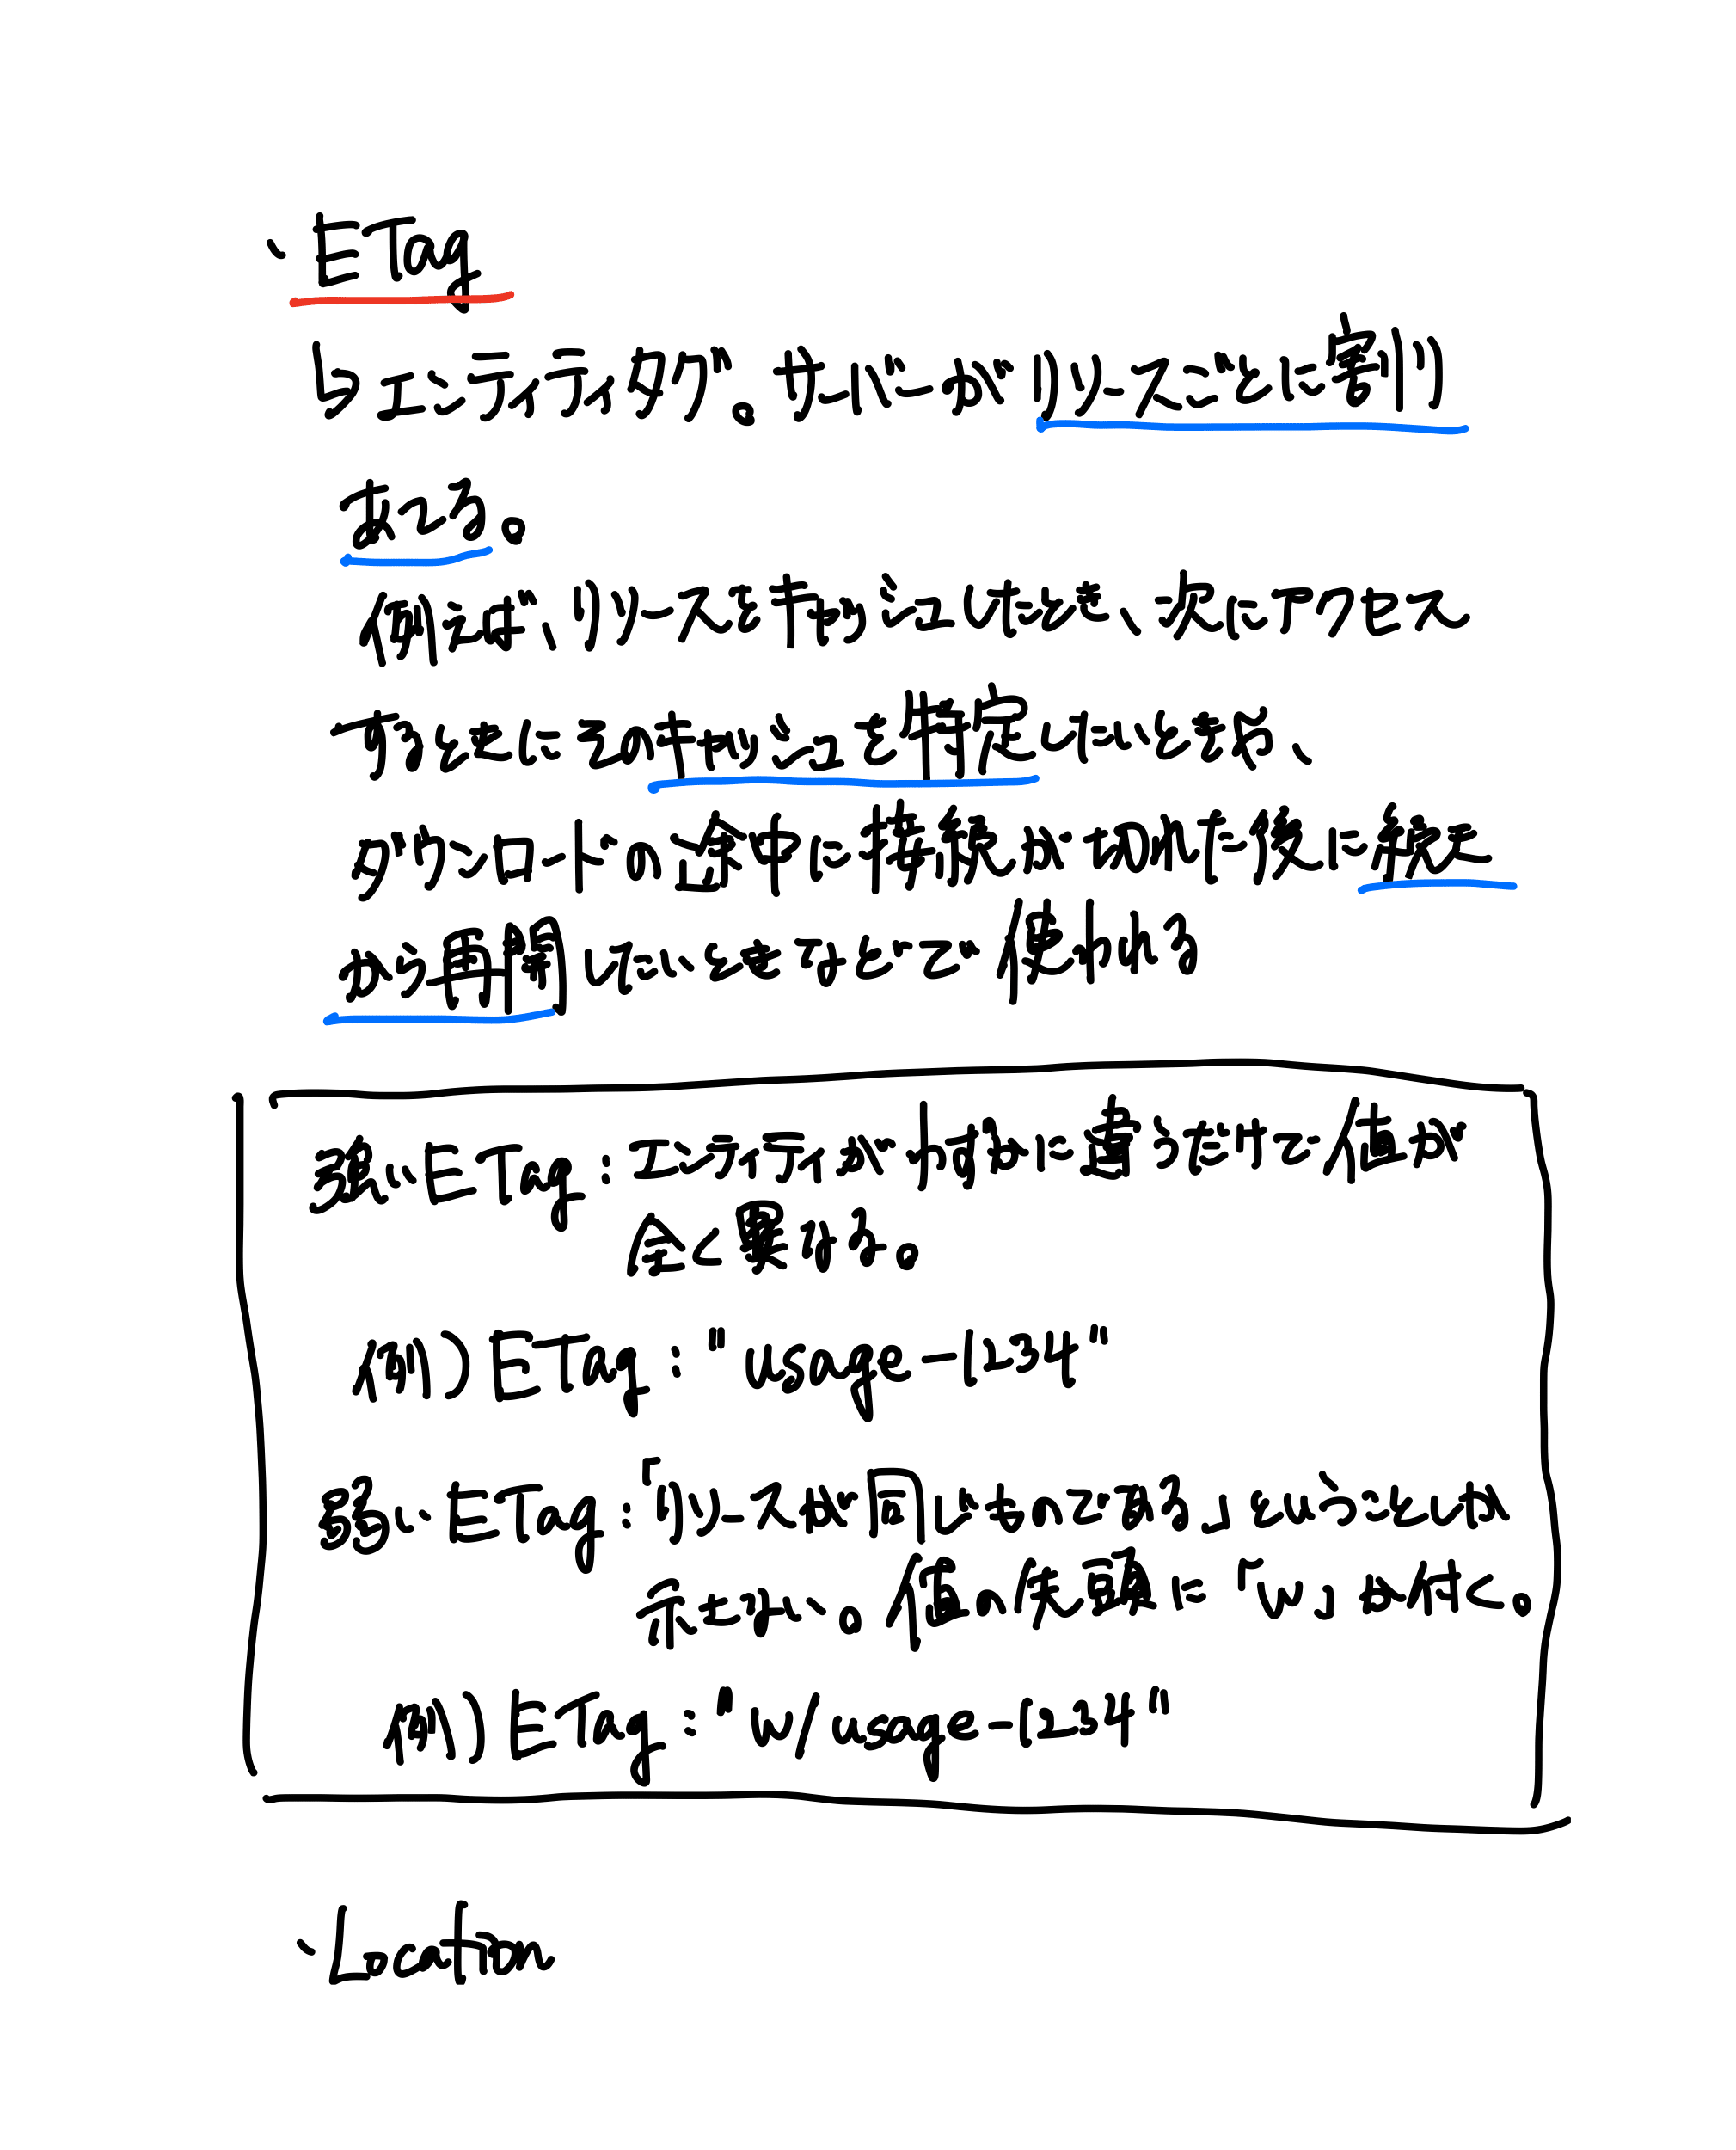 ・ETag
↳エンティティタグ。サーバーがリソースごとに割り
あてる。
例えば、リソースをキャッシュしたとき、次にアクセス
するときにそのキャッシュを特定したいときや、
ダウンロードの途中に接続が切れた後に続き
から再開したいときなどで使われる
強いETag:エンティティがわずかに違うだけで値が
全く異なる。
例)ETag:"usage-1234"
弱いETag:「リソースが同じものである」ということしか
示せない。値の先頭に「W」が付く。
例)ETag:"W/usage-1234"
・Location